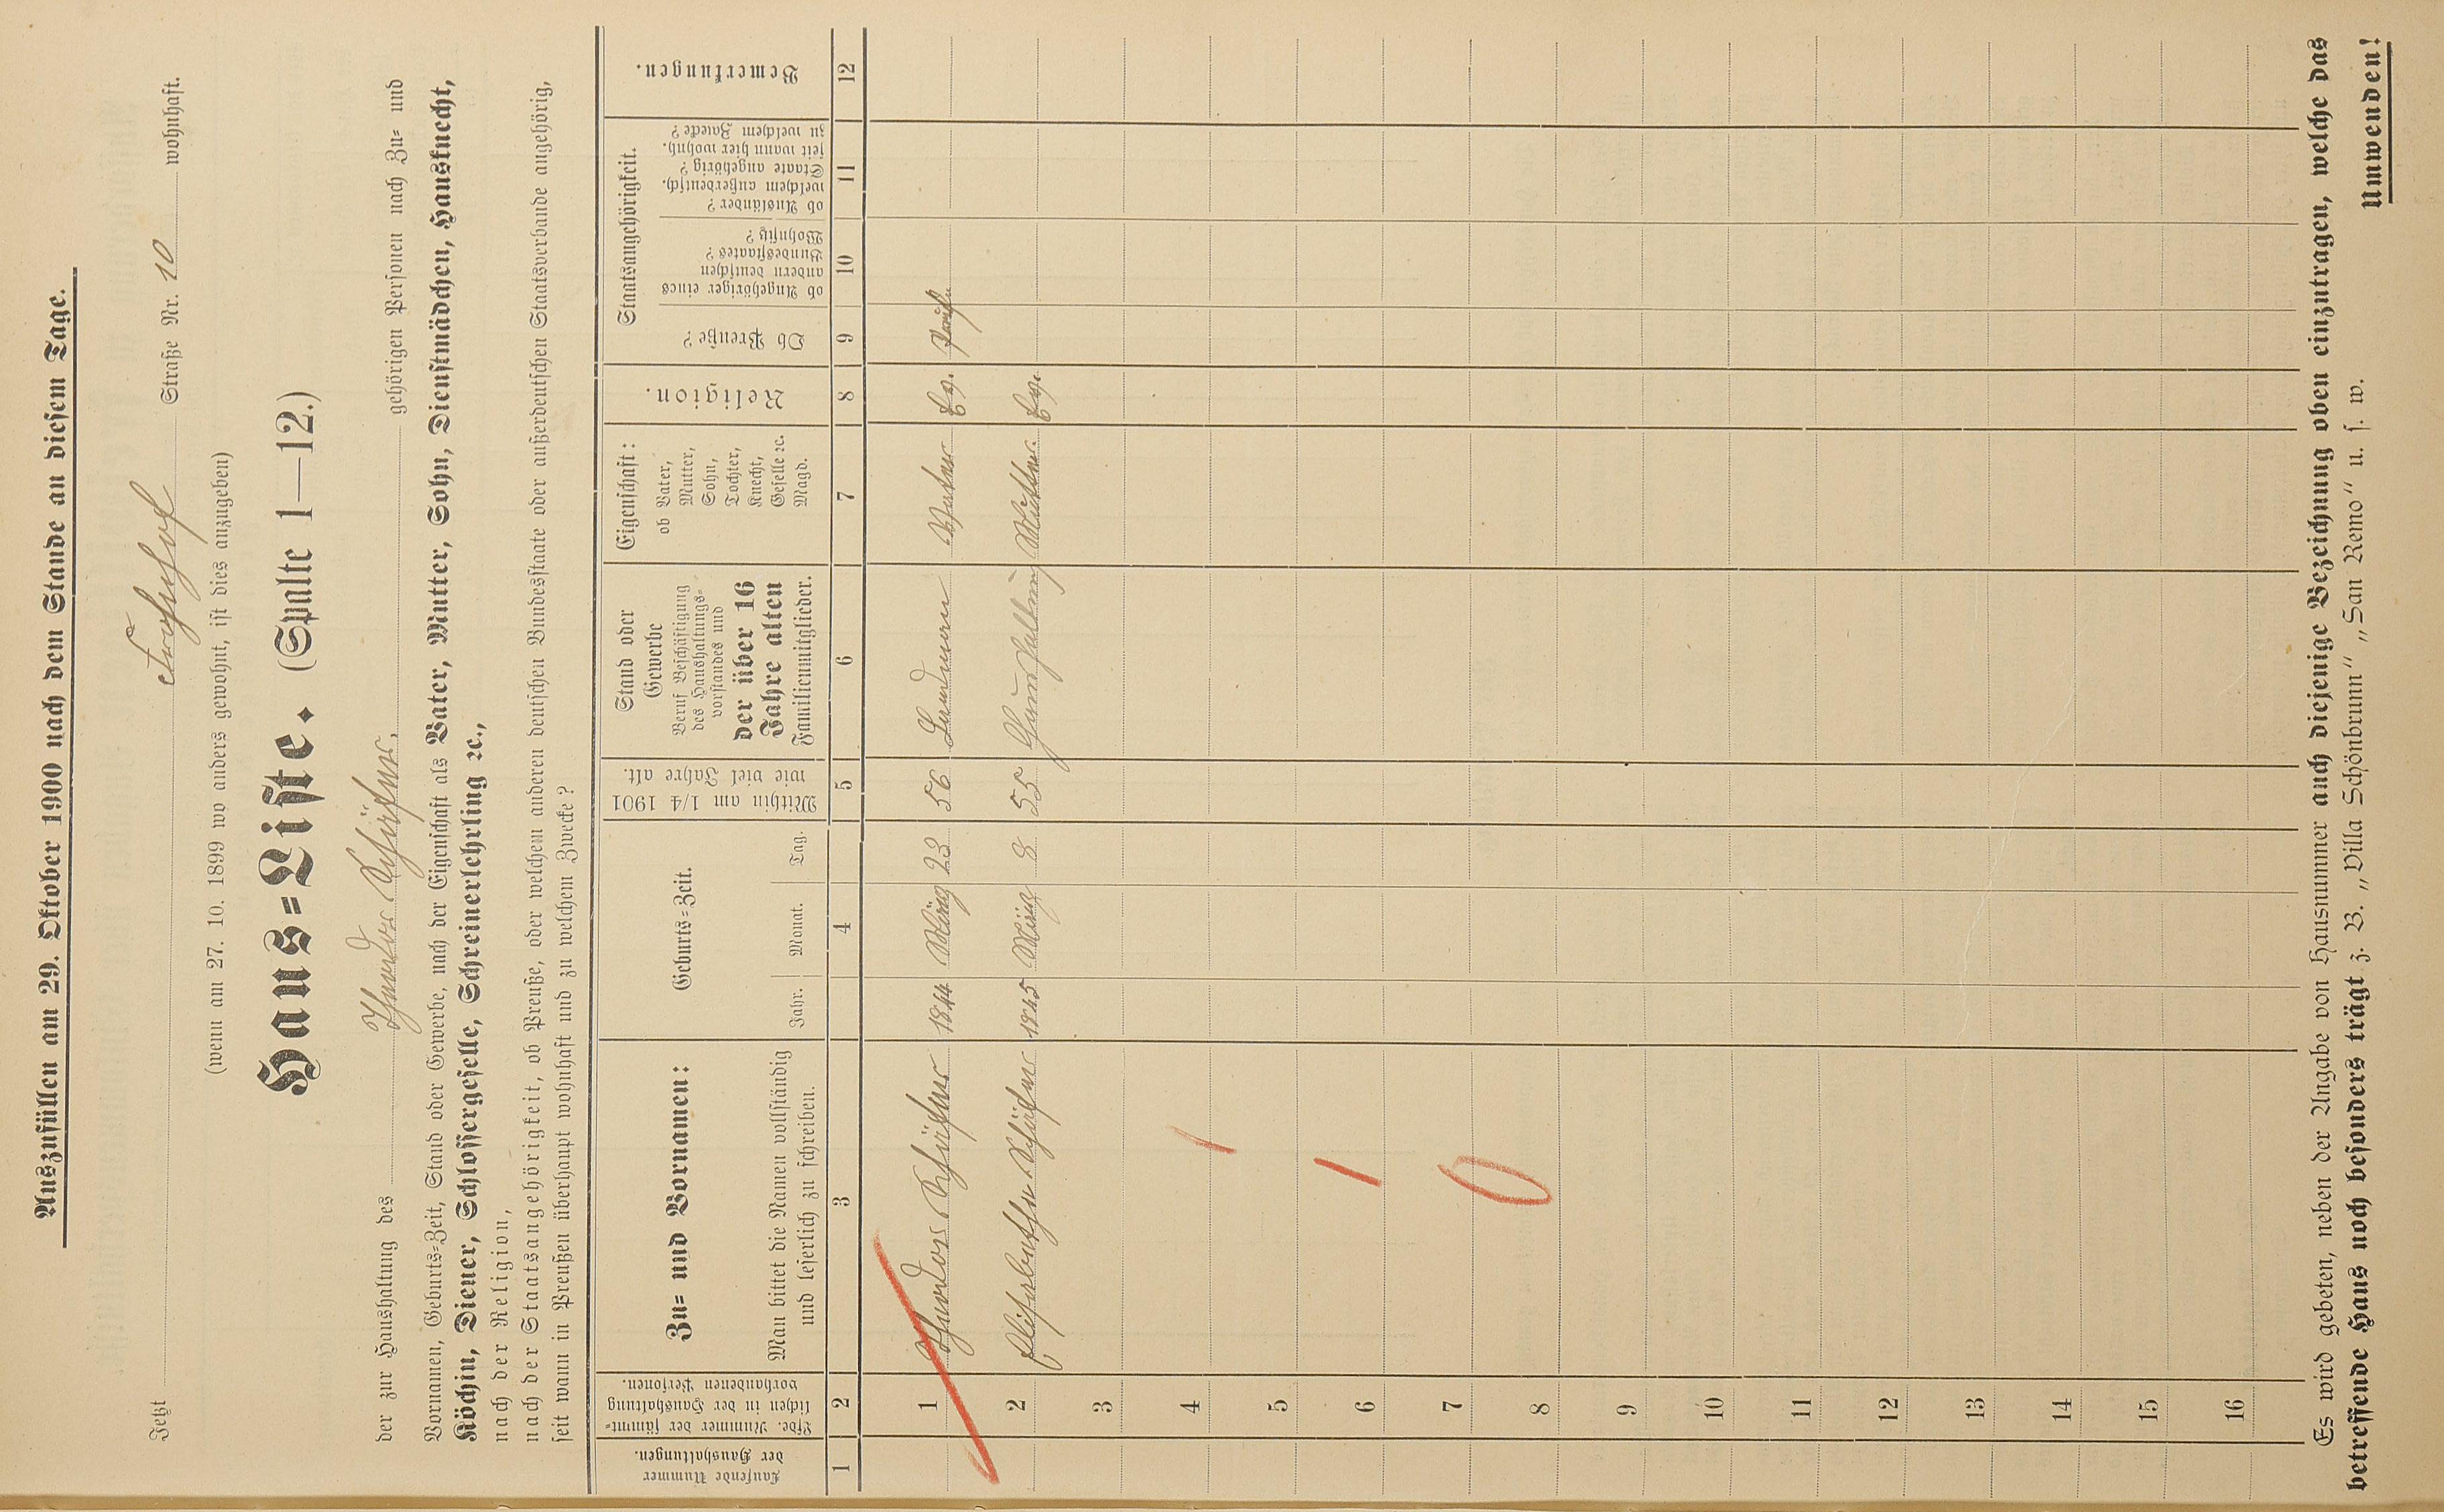 Auszufüllen am 29. Oktober 1900 nach dem Stande an diesem Tage.
Jetzt Straße Nr. 10 wohnhaft.
(wenn am 27. 10. 1899 wo anders gewohnt, ist dies anzugeben)
Haus-Liste. (Spalte 1—12.)
der zur Haushaltung des Theodor Schäfer, gehörigen Personen nach Zu- und
Vornamen, Geburts-Zeit, Stand oder Gewerbe, nach der Eigenschaft als Vater, Mutter, Sohn, Dienstmädchen, Hausknecht,
Köchin, Diener, Schlossergeselle, Schreinerlehrling ꝛc.,
nach der Religion,
nach der Staatsangehörigkeit, ob Preuße, oder welchem anderen deutschen Bundesstaate oder außerdeutschen Staatsverbande angehörig,
seit wann in Preußen überhaupt wohnhaft und zu welchem Zwecke?
Laufende Nummer der Haushaltungen.
Lfde. Nummer der sämmtlichen in der Haushaltung vorhandenen Personen.
Zu- und Vornamen:
Man bittet die Namen vollständig
und leserlich zu schreiben.
Geburts-Zeit.
Jahr. Monat. Tag.
Mithin am 1/4 1901
wie viel Jahre alt.
Stand oder
Gewerbe
Beruf Beschäftigung
des Haushaltungs-
vorstandes und
der über 16
Jahre alten
Familienmitglieder.
Eigenschaft:
ob Vater,
Mutter,
Sohn,
Tochter,
Knecht,
Geselle ꝛc.
Magd.
Religion.
Staatsangehörigkeit.
Ob Preuße?
ob Angehöriger eines
andern deutschen
Bundesstaates?
Wohnsitz?
ob Ausländer?
welchem außerdeutsch.
Staate angehörig?
seit wann hier wohnh.
zu welchem Zwecke?
Bemerkungen.
1 2 3 4 5 6 7 8 9 10 11 12
1 Theodor Schäfer 1844 März 23 56 Landmann Vater Ev.
2 Elisabethe Schäfer 1845 März 8 55 Haushaltung Mutter Ev.
3
4
5
6
7
8
9
10
11
12
13
14
15
16
Es wird gebeten, neben der Angabe von Hausnummer auch diejenige Bezeichnung oben einzutragen, welche das
betreffende Haus noch besonders trägt z. B. „Villa Schönbrunn" „San Remo" u. s. w.
Umwenden!